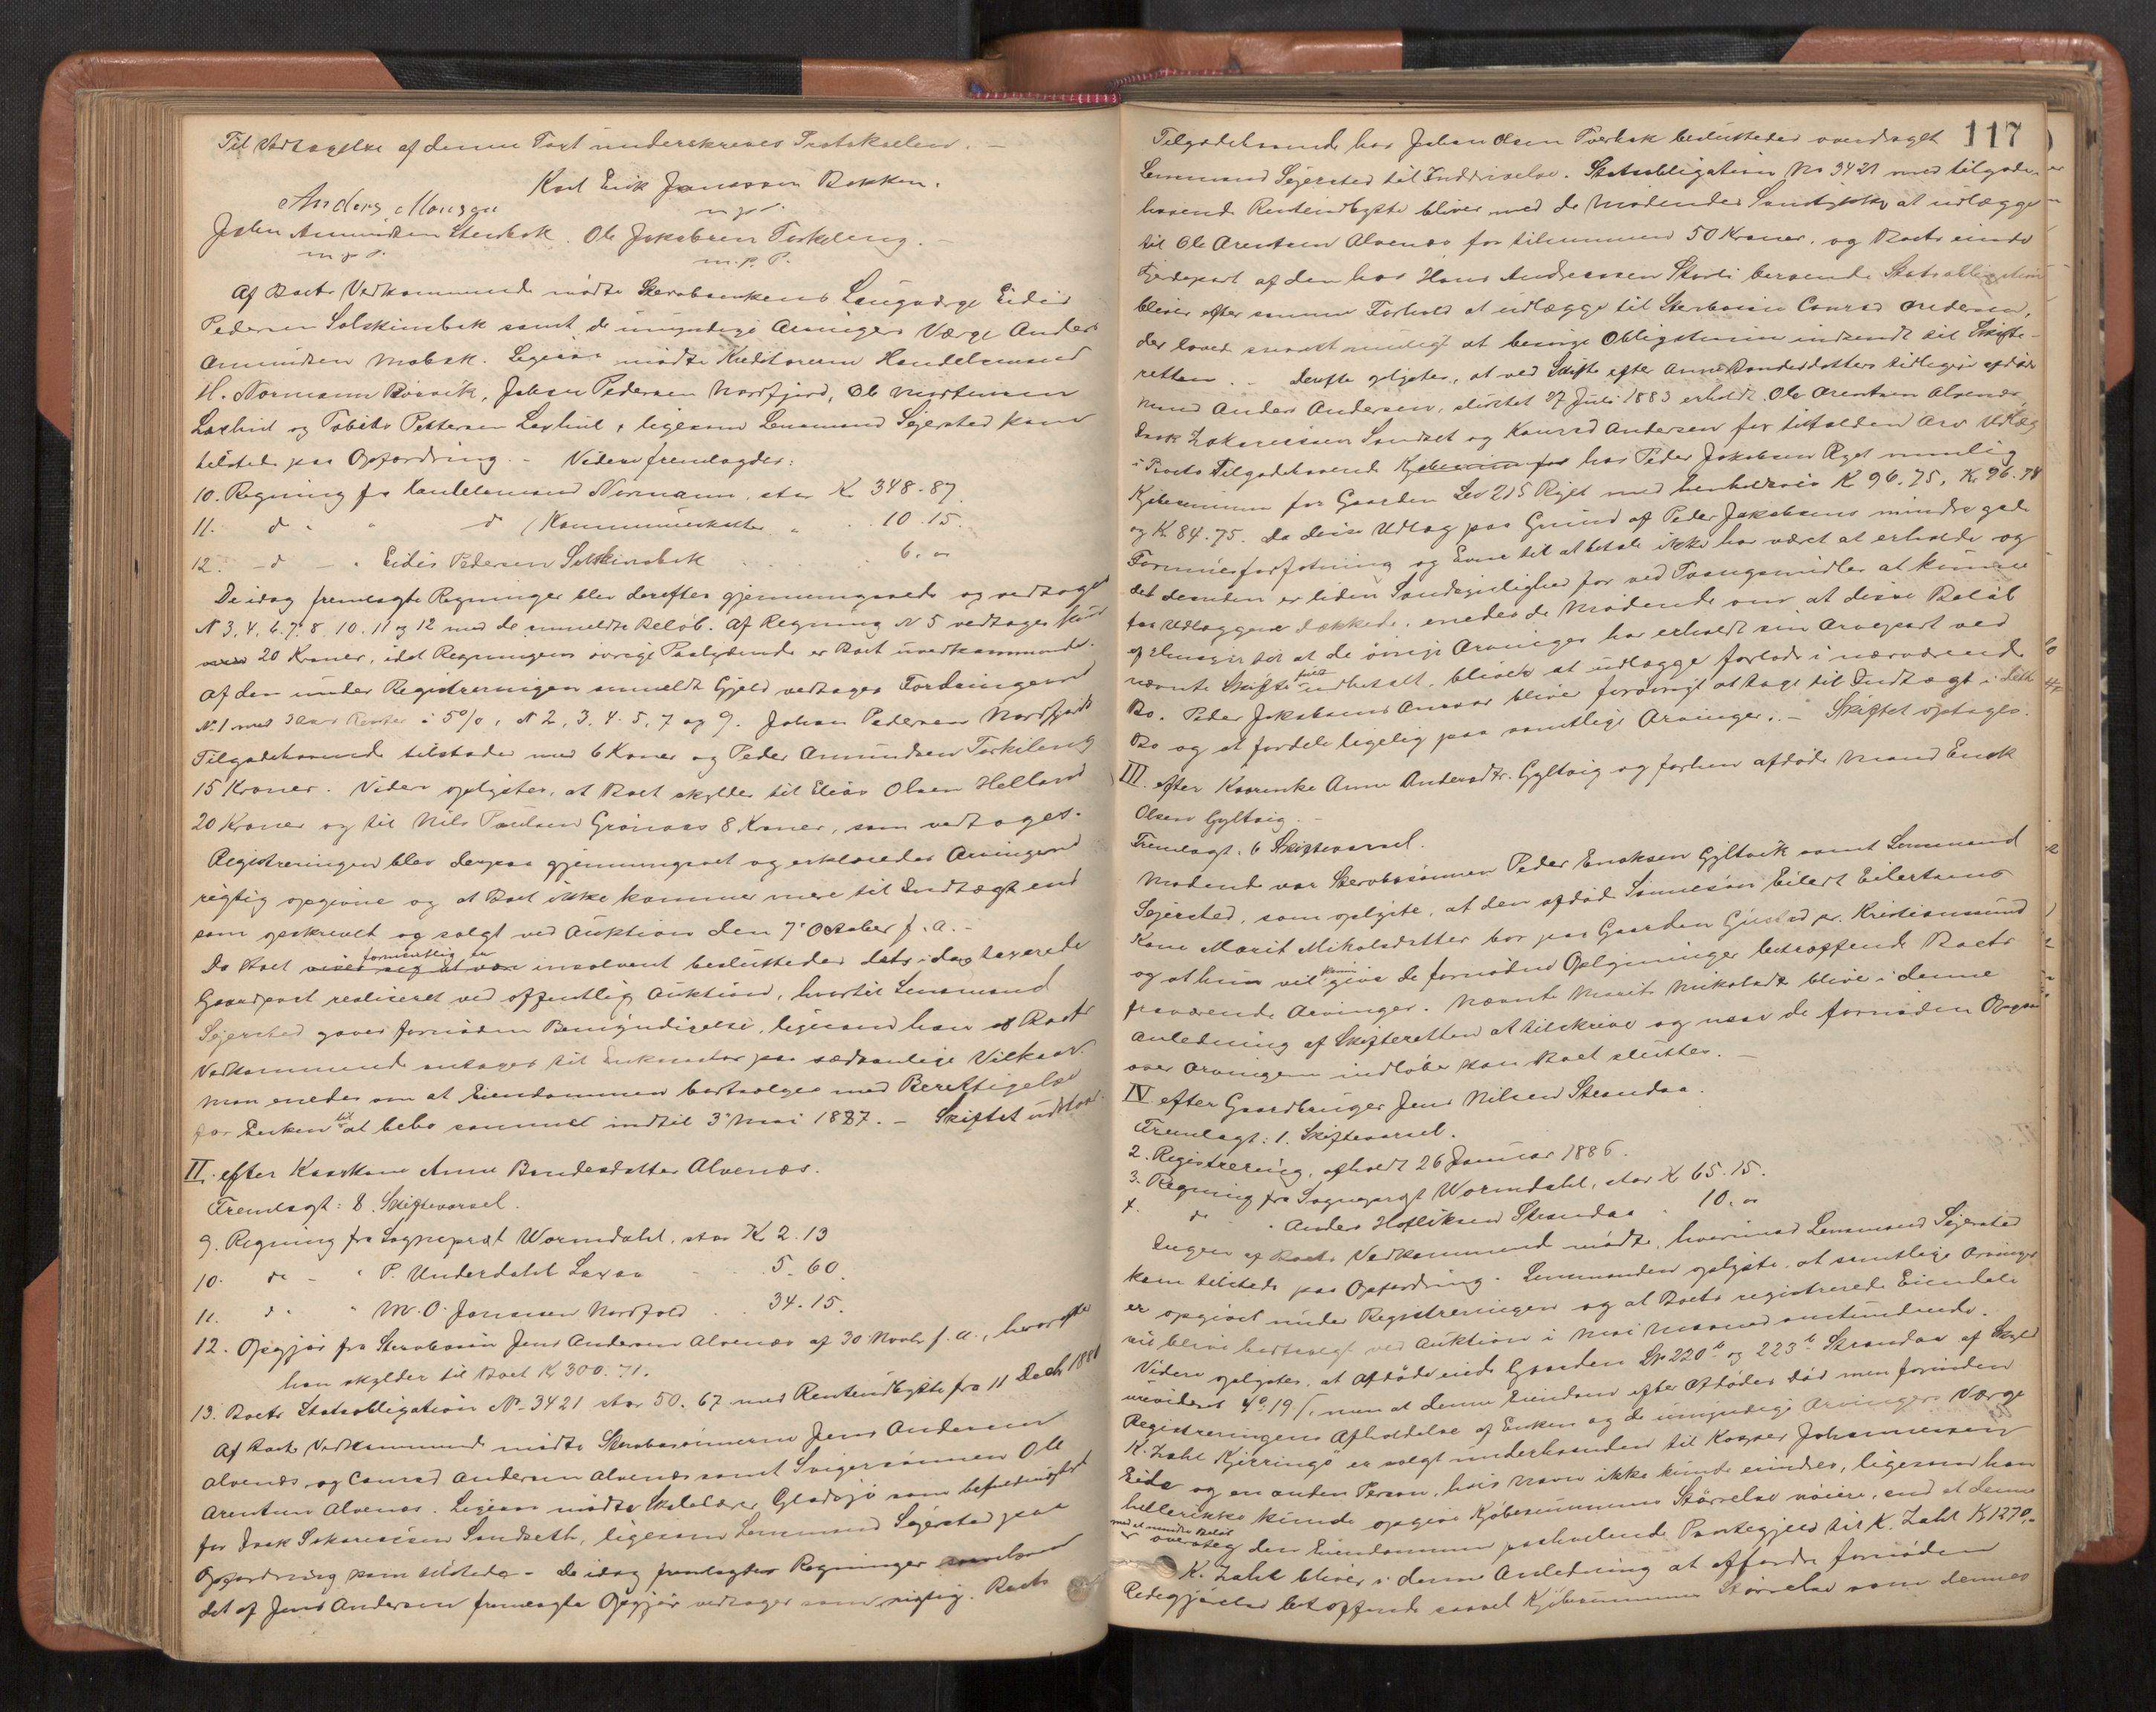 Til Vedtagelse af denne Taxt underskreves Protokollen. —
Karl Erik Jonassen Bakken.
Anders Monsen m. p. P.
John Amundsen Stenbak. Ole Jakobsen Torkeleng. —
m. p. P. m. p. P.
Af Boets Vedkommende mødte Stervboenkens Laugværge Eidis
Pedersen Solskinsbak samt de umyndige Arvingers Værge Anders
Amundsen Mobak. Ligesaa mødte Kreditorerne Handelsmand
H. Normann Rörvik, Johan Pedersen Nordfjord, Ole Mortensen
Laxhul og Tobias Pettersen Laxhul, ligesom Lensmand Sejersted kom
tilstede paa Opfordring. — Videre fremlagdes:
10. Regning fra Handelsmand Normann, stor K 348-87.
11. do " " do (Kommuneskatter " . . 10.15.
12. — do — " Eidis Pedersen Solskinsbak . . . 6. "
De idag fremlagte Regninger blev derefter gjennemgaaede og vedtoges
N 3, 4, 6. 7. 8. 10. 11 og 12 med de anmeldte Beløb. Af Regning N 5 vedtages kun
20 Kroner, idet Regningens øvrige Paalydende er Boet uvedkommende.
Af den under Registreringen anmeldte Gjeld vedtages Fordringerne
N. 1 med 3 Aars Renter à 5%, N 2, 3. 4. 5, 7 og 9. Johan Pedersen Nordfjords
Tilgodehavende tilstodes med 6 Kroner og Peder Amundsen Torkileng
15 Kroner. Videre oplystes, at Boet skylder til Elias Olsen Helland
20 Kroner og til Nils Paulsen Grönaas 8 Kroner, som vedtoges.
Registreringen blev derpaa gjennemgaaet og erklæredes Arvingerne
rigtig opgivne og at Boet ikke kommer mere til Indtægt end
som opskrevet og solgt ved Auktion den 7' October f. a. —
Da Boet viser sig at være formentlig er insolvent besluttedes dets idag taxerede
Gaardpart realiseret ved offentlig Auktion, hvortil Lensmand
Sejersted gaves fornøden Bemyndigelse, ligesom han af Boets
Vedkommende antages til Inkassator paa sædvanlige Vilkaar.
Man enedes om at Eiendommen bortsælges med Berettigelse
for Enken til at bebo sammen indtil 3' Mai 1887. — Skiftet udstaar.
II. efter Kaarkone Anne Bendesdatter Alvenæs.
Fremlagt: 8. Skiftevarsel.
9. Regning fra Sogneprest Wormdahl, stor K 2.13
10. do — " P. Underdahl Laxaa . . 5. 60.
11. do " " M. O. Jonassen Nordfold . . 34. 15.
12. Opgjør fra Stervbosøn Jens Andersen Alvenæs af 30' Novbr f. a., hvorefter
han skylder til Boet K 300. 71.
13. Boets Statsobligation N. 3421 stor 50. 67 med Renteudbytte fra 11 Decbr 1881
Af Boets Vedkommende mødte Stervbosønnerne Jens Andersen
Alvenæs og Conrad Andersen Alvenæs samt Svigersønnen Ole
Arentsen Alvenæs. Ligesaa mødte Skolelærer Gladsjø som befuldmægtiget
for Isak Sakariassen Sandseth, ligesom Lensmand Sejersted paa
Opfordring kom tilstede. — De idag fremlagte Regninger
det af Jens Andersen fremlagte Opgjør vedtages som rigtig. Boets
117
Tilgodehavende hos Johan Olsen Tverbak besluttedes overdraget
Lensmand Sejersted til Inddrivelse. Statsobligation No 3421 med tilgode-
havende Renteudbytte bliver med de Mødendes Samtykke at udlægge
til Ole Arentsen Alvenæs for tilsammen 50 Kroner, og Boets eiende
Fjerdepart af den hos Hans Andreassen Skavli beroende Statsobligation
bliver efter samme Forhold at udlægge til Stervbosøn Conrad Andersen,
der loved snarest muligt at besørge Obligationen indsendt til Skifte-
retten. — Derefter oplystes, at ved Skifte efter Anne Bendesdatters tidligere afdøde
Mand Anders Andersen, sluttet 27 Juli 1883 erholdt Ole Arentsen Alvenæs,
Isak Zakariassen Sandset og Konrad Andersen for tilfalden Arv Udlæg
i Boets Tilgodehavende Kjøbesum for hos Peder Jakobsen Ryet nemlig
Kjøbesummen for Gaarden Løv 215 Ryet med henholdsvis K 96. 75, K. 96. 74
og K 84. 75. Da disse Udlæg paa Grund af Peder Jakobsens mindre gode
Formuesforfatning og Evne til at betale ikke har været at erholde og
det desuden er liden Sandsynlighed for ved Tvangsmidler at kunne
faa Udlæggene dækkede, enedes de Mødende om, at disse Beløb
af Hensyn til at de øvrige Arvinger har erholdt sin Arvepart ved
nævnte Skifte fuldt udbetalt, bliver at udlægge forlods i nærværende
Bo. Peder Jakobsens Ansvar bliver forøvrigt at tage til Indtægt i dette
Bo og at fordele ligelig paa samtlige Arvinger. — Skiftet optages.
III. efter Kaarenke Anne Andersdtr. Gyltvig og forhen afdøde Mand Enok
Olsen Gyltvig. —
Fremlagt. 6 Skiftevarsel.
Mødende var Stervbosønnen Peder Enoksen Gyltvik samt Lensmand
Sejersted, som oplyste, at den afdøde Sønnesøn Eilert Eilertsens
Kone Marit Mikalsdatter bor paa Gaarden Gustad pr. Kristianssund
og at hun vil kunne give de fornødne Oplysninger betræffende Boets
fraværende Arvinger. Nævnte Marit Mikalsdtr. blive i denne
Anledning af Skifteretten at tilskrive og naar de fornødne Opgaver
over Arvingerne indløber kan Boet sluttes. —
IV efter Gaardbruger Jens Nilsen Strandaa.
Fremlagt: 1. Skiftevarsel.
2. Registrering, afholdt 26 Januar 1886.
3. Regning fra Sogneprest Wormdahl, stor K 65. 15.
4. do " Anders Strandaa . 10. "
Ingen af Boets Vedkommende mødte, hvorimod Lensmand Sejersted
kom tilstede paa Opfordring. Lensmanden oplyste, at samtlige Arvinger
er opgivet under Registreringen og at Boets registrerede Eiendele
vil blive bortsolgt ved Auktion i Mai Maaned anstundende.
Videre oplystes, at Afdøde eiede Gaarden Lr 220 b og 223 b Strandaa af Skyld
urevideret 4 o 19 ſ, men at denne Eiendom efter Afdødes Død men forinden
Registreringens Afholdelse af Enken og de umyndige Arvingers Værge
K. Zahl Kjerringø er solgt underhaanden til Kasper Johannessen
Eide og en anden Person, hvis Navn ikke kunde erindres, ligesom han
hellerikke kunde opgive Kjøbesummens Størrelse nøiere, end at denne
med et mindre Beløb oversteg den Eiendommen paahvilende Pantegjeld til K. Zahl K 1270,-
K. Zahl bliver i denne Anledning at affordre fornøden
Redegjørelse betræffende saavel Kjøbesummens Størrelse som dennes